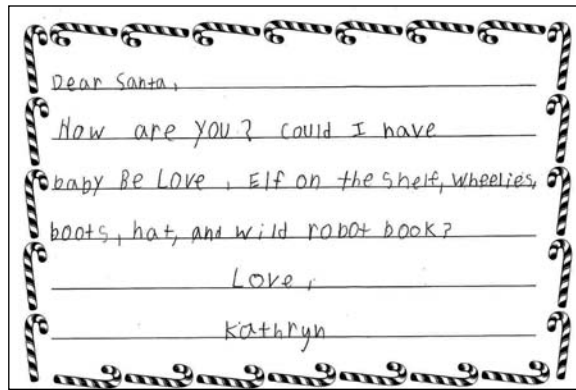 Dear Santa,
How are you? Could I have
baby Be Love, Elf on the Shelf, Wheelies,
boots, hat, and wild robot book?
Love,
Kathryn